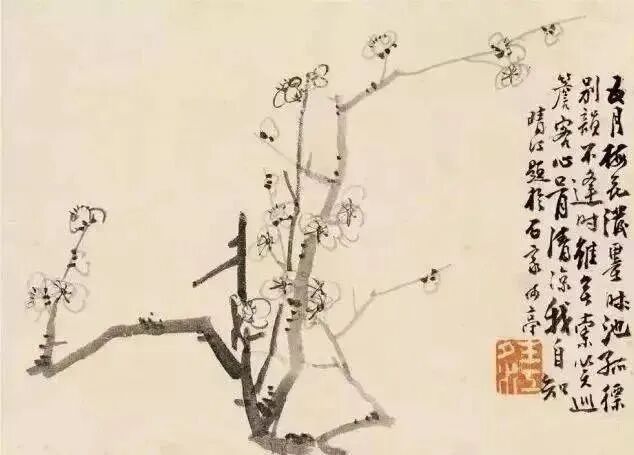 五月梅花墨池孤標
別韻不逢時雖無索笑巡
簷客心骨清涼我自知
晴江題於石家亭